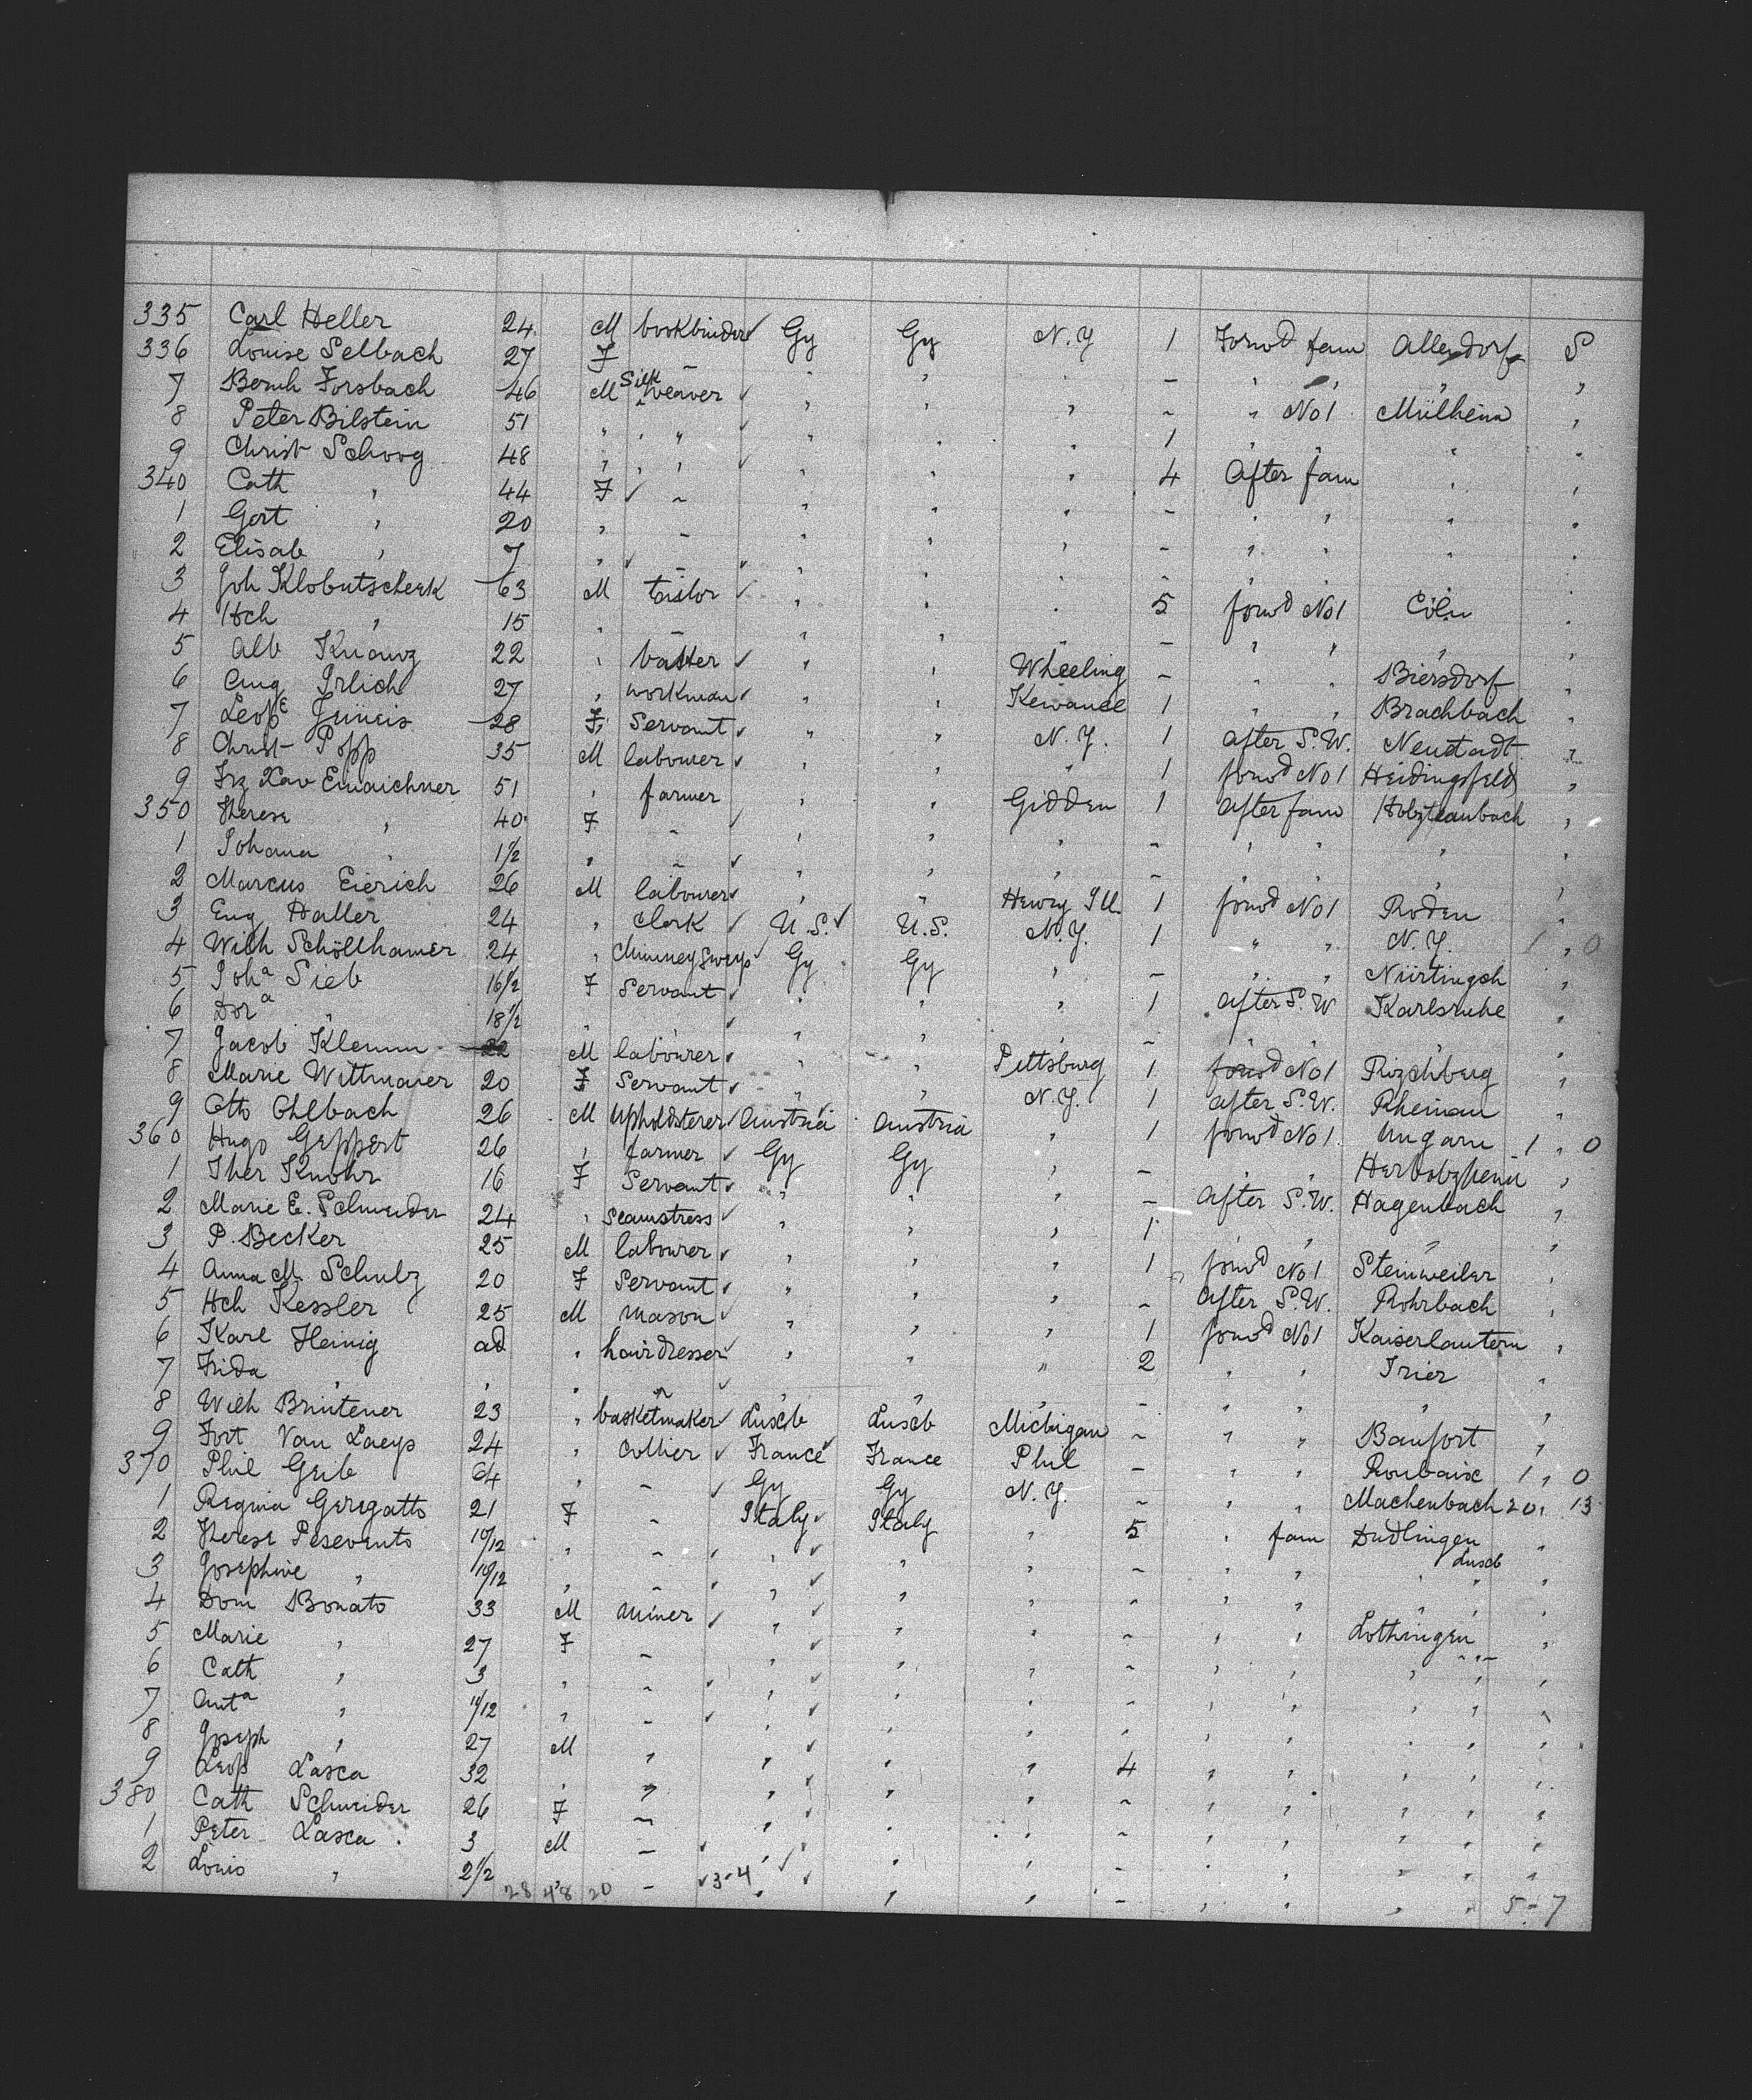 335 Carl Heller 24 M bookbinder Gy Gy N.Y 1 Forwd fam Allendorf S
336 Louise Selbach 27 F - " " " - " " " "
7 Bernh Forsbach 46 M Silk weaver " " " - " No1 Mülheim "
8 Peter Bilstein 51 " " " " " " 1 " " " "
9 Christ Schoog 48 " " " " " " 4 After fam " "
340 Cath " 44 F - " " " - " " " "
1 Gert " 20 " - " " " - " " " "
2 Elisab " 7 " - " " " - " " " "
3 Joh Klobutscheck 63 M tailor " " " 5 forwd No1 Cöln "
4 Hch " 15 " - " " " - " " " "
5 Alb Knauz 22 " " " Wheeling - " " Biersdorf "
6 Aug Irlich 27 " workman " " Kewanee 1 " " Brachbach "
7 Leop 28 F Servant " " N.Y. 1 after S.W. Neustadt "
8 Christ Popp 35 M labourer " " " 1 forwd No1 Heidingsfeld "
9 Frz Xav Emaichner 51 " farmer " " Gidden 1 after fam Holztraubach "
350 Therese " 40 F - " " " - " " " "
1 Johana " 1 1/2 " - " " " - " " " "
2 Marcus Eierich 26 M labourer " " Henry Ill. 1 forwd No1 Roden "
3 Eug Haller 24 " Clerk U.S. U.S. N.Y. 1 " " N.Y. 1 " 0
4 Wilh Schöllhamer 24 " Chimney Sweep Gy Gy " - " " "
5 Joha Sieb 16 1/2 F Servant " " " 1 after S.W Karlsruhe "
6 Dora " 18 1/2 " " " " " - " " " "
7 Jacob Klemm 22 M labourer " " Pittsburg 1 forwd No1 Pirschberg "
8 Marie Wittmaier 20 F Servant " " N.Y. 1 after S.W. Rheinau "
9 Otto Ohlbach 26 M Upholdsterer Austria Austria " 1 forwd No1 Ungarn 1 " 0
360 Hugo Geppert 26 " farmer Gy Gy " - " " "
1 Ther Knohr 16 F Servant " " " - after S.W. Hagenbach "
2 Marie E. Schneider 24 " Seamstress " " " 1 " " " "
3 P. Becker 25 M labourer " " " 1 forwd No1 Steinweiler "
4 Anna M. Schulz 20 F Servant " " " - After S.W. Rohrbach "
5 Hch Kessler 25 M mason " " " 1 forwd No1 Kaiserlautern "
6 Karl Heinig ad " hairdresser " " " 2 " " Trier "
7 Frida " " " " " " " - " " " "
8 Wilh Brintener 23 " basketmaker Luxeb Luxeb Michigan - " " Baufort "
9 Fort Van Laeys 24 " Collier France France Phil - " " Roubaix 1 " 0
370 Phil Geib 64 " - Gy Gy N.Y. - " " Machenbach 20 " 13
1 Regina Geregatto 21 F - Italy Italy " 5 " fam Dudlingen Luxeb "
2 Therese Pesevento 10/12 " - " " " - " " " "
3 Josephine " 10/12 " - " " " - " " " "
4 Dom Bonato 33 M Miner " " " - " " Lothringen "
5 Marie " 27 F - " " " - " " " "
6 Cath " 3 " - " " " - " " " "
7 Anta " 11/12 " - " " " - " " " "
8 Joseph " 27 M " " " " " " " " "
9 Leop Lasca 32 " " " " " 4 " " " "
380 Cath Schneider 26 F - " " " - " " " "
1 Peter Lasca 3 M - " " " - " " " "
2 Louis " 2 1/2 - " " " - " " " "
28 48 20 3-4 5-7